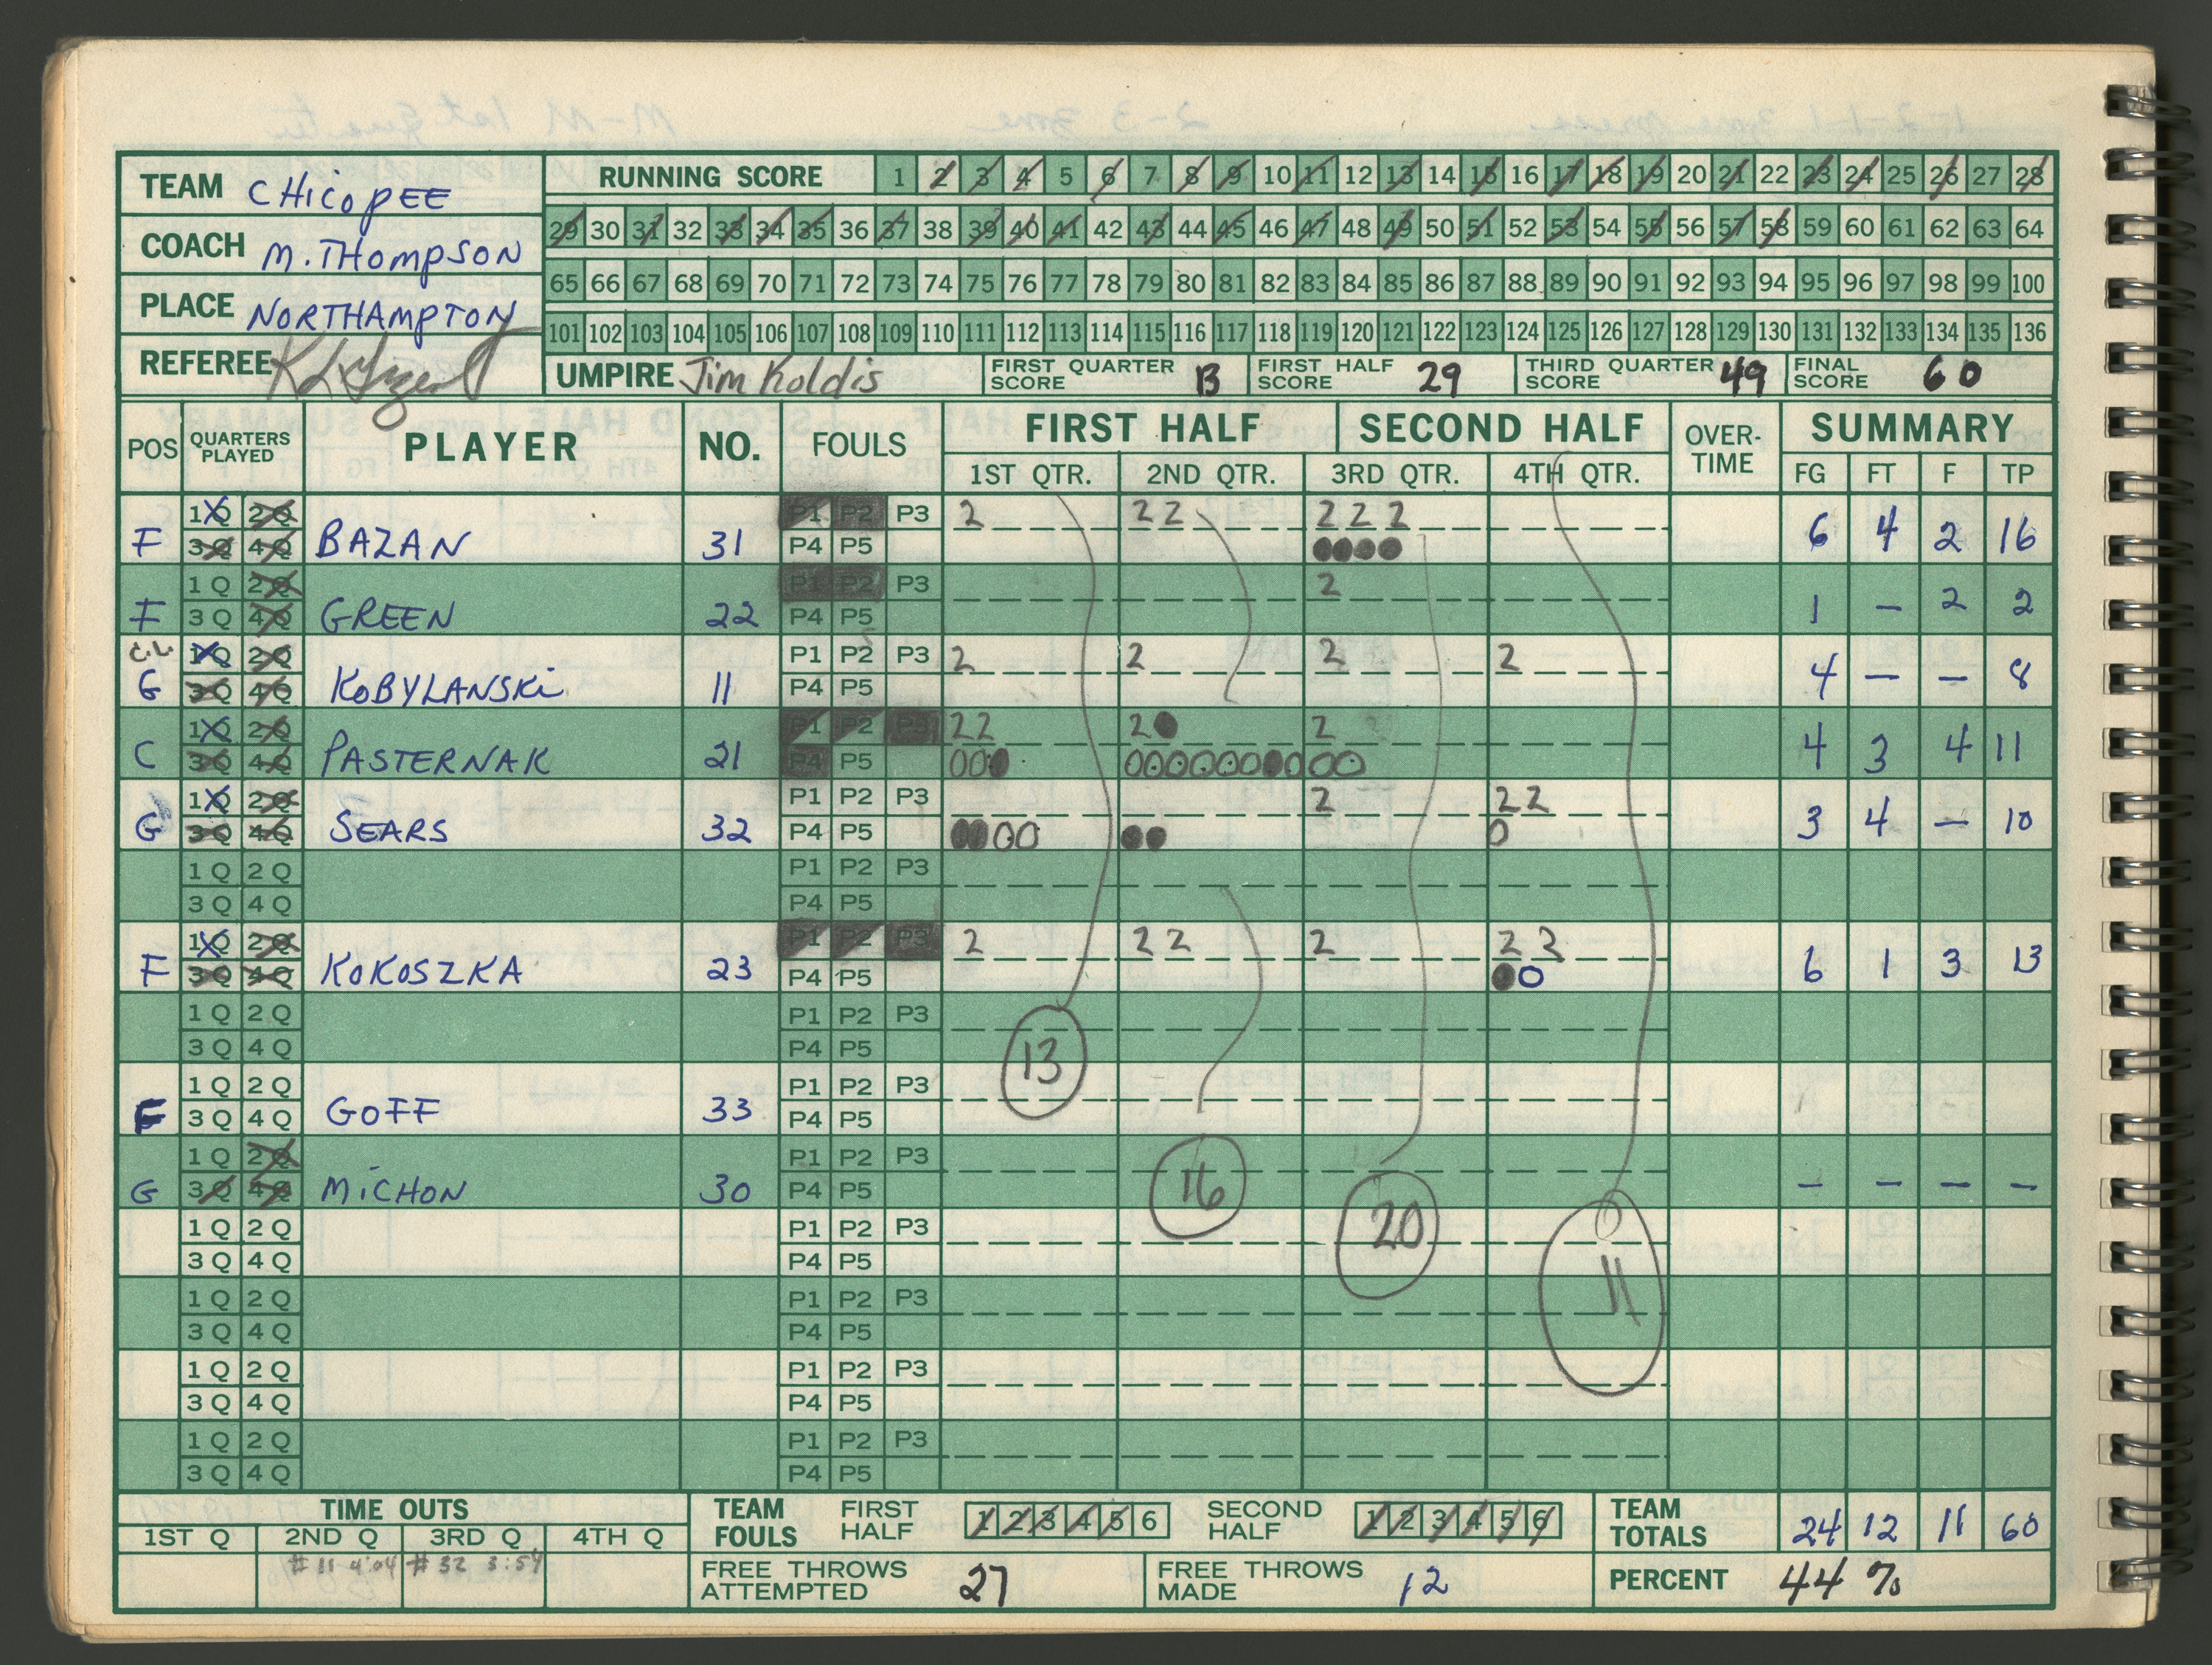 TEAM CHicopEE
RUNNING SCORE 1 2 3 4 5 6 7 8 9 10 11 12 13 14 15 16 17 18 19 20 21 22 23 24 25 26 27 28
COACH M. THompSON
29 30 31 32 33 34 35 36 37 38 39 40 41 42 43 44 45 46 47 48 49 50 51 52 53 54 55 56 57 58 59 60 61 62 63 64
65 66 67 68 69 70 71 72 73 74 75 76 77 78 79 80 81 82 83 84 85 86 87 88 89 90 91 92 93 94 95 96 97 98 99 100
PLACE NORTHAmpTON
101 102 103 104 105 106 107 108 109 110 111 112 113 114 115 116 117 118 119 120 121 122 123 124 125 126 127 128 129 130 131 132 133 134 135 136
REFEREE
UMPIRE Jim Koldis
FIRST QUARTER SCORE 13
FIRST HALF SCORE 29
THIRD QUARTER SCORE 49
FINAL SCORE 60
POS QUARTERS PLAYED PLAYER NO. FOULS FIRST HALF SECOND HALF OVER-TIME SUMMARY
1ST QTR. 2ND QTR. 3RD QTR. 4TH QTR. FG FT F TP
1Q 2Q P1 P2 P3 2 2 2 2 2 2
F 3Q 4Q BAZAN 31 P4 P5 6 4 2 16
1Q 2Q P1 P2 P3 2
F 3Q 4Q GREEN 22 P4 P5 1 — 2 2
1Q 2Q P1 P2 P3 2 2 2 2
G 3Q 4Q KOBYLANSKi 11 P4 P5 4 — — 8
1Q 2Q P1 P2 P3 2 2 2 2
C 3Q 4Q PASTERNAK 21 P4 P5 4 3 4 11
1Q 2Q P1 P2 P3 2 2 2
G 3Q 4Q SEARS 32 P4 P5 3 4 — 10
1Q 2Q P1 P2 P3
3Q 4Q P4 P5
1Q 2Q P1 P2 P3 2 2 2 2 2 2
F 3Q 4Q KOKOSZKA 23 P4 P5 6 1 3 13
1Q 2Q P1 P2 P3
3Q 4Q P4 P5
13
1Q 2Q P1 P2 P3
F 3Q 4Q GOFF 33 P4 P5
1Q 2Q P1 P2 P3
G 3Q 4Q MiCHON 30 P4 P5 — — — —
16
20
11
1Q 2Q P1 P2 P3
3Q 4Q P4 P5
1Q 2Q P1 P2 P3
3Q 4Q P4 P5
1Q 2Q P1 P2 P3
3Q 4Q P4 P5
1Q 2Q P1 P2 P3
3Q 4Q P4 P5
TIME OUTS
1ST Q 2ND Q 3RD Q 4TH Q
#11 4:04 #32 3:54
TEAM FOULS FIRST HALF 1 2 3 4 5 6 SECOND HALF 1 2 3 4 5 6
TEAM TOTALS 24 12 11 60
FREE THROWS ATTEMPTED 27
FREE THROWS MADE 12
PERCENT 44 %